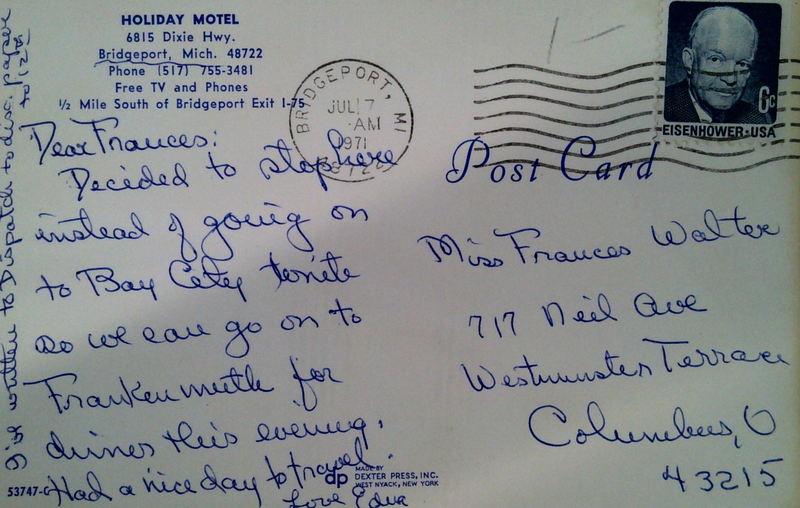 HOLIDAY MOTEL
6815 Dixie Hwy.
Bridgeport, Mich. 48722
Phone (517) 755-3481
Free TV and Phones
½ Mile South of Bridgeport Exit I-75
Dear Frances:
Decided to stop here
instead of going on
to Bay City tonite
so we can go on to
Frankenmuth for
dinner this evening.
Had a nice day to travel.
Love Edna
written to Dispatch to disc. paper
to 12th
53747-C
dp
MADE BY
DEXTER PRESS, INC.
WEST NYACK, NEW YORK
BRIDGEPORT, MI
JUL 7
AM
1971
6c
EISENHOWER·USA
Post Card
Miss Frances Walter
717 Neil Ave
Westminster Terrace
Columbus, O
43215